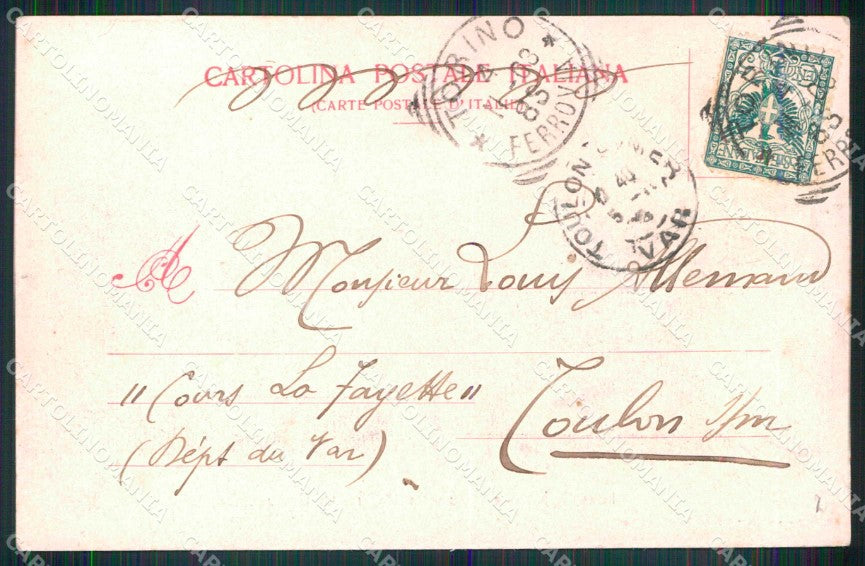 CARTOLINA POSTALE ITALIANA
(CARTE POSTALE D'ITALIE)
TORINO
FERROVIA
TOULON
VAR
A
Monsieur Louis Allemand
"Cours La Fayette"
Toulon s/m
(Dépt du Var)
CARTOLINOMANIA